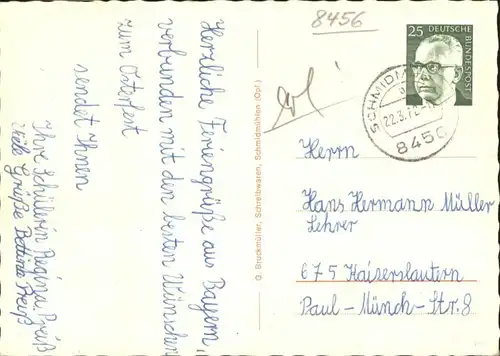 8456
Herzliche Feriengrüße aus Bayern,
verbunden mit den besten Wünschen
zum Osterfest
sendet Ihnen
Ihre Schülerin Regina Preiß
viele Grüße Bettina Preiß
O. Bruckmüller, Schreibwaren, Schmidmühlen (Opf.)
25 DEUTSCHE
BUNDESPOST
SCHMIDM
22.3.72
8456
Herrn
Hans Hermann Müller
Lehrer
675 Kaiserslautern
Paul-Münch-Str. 8